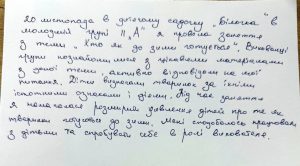 20 листопада в дитячому садочку "Білочка" в
молодшій групі II "А" я провела заняття
з теми "Хто як до зими готується". Вихованці
групи познайомилися з цікавими матеріалами
з даної теми, активно відповідали на мої
питання. Діти визначали тваринок за їхніми
істотними ознаками і діями. Під час заняття
я намагалася розширити уявлення дітей про те як
тварини готуються до зими. Мені сподобалось працювати
з дітьми та спробувати себе в ролі вихователя.